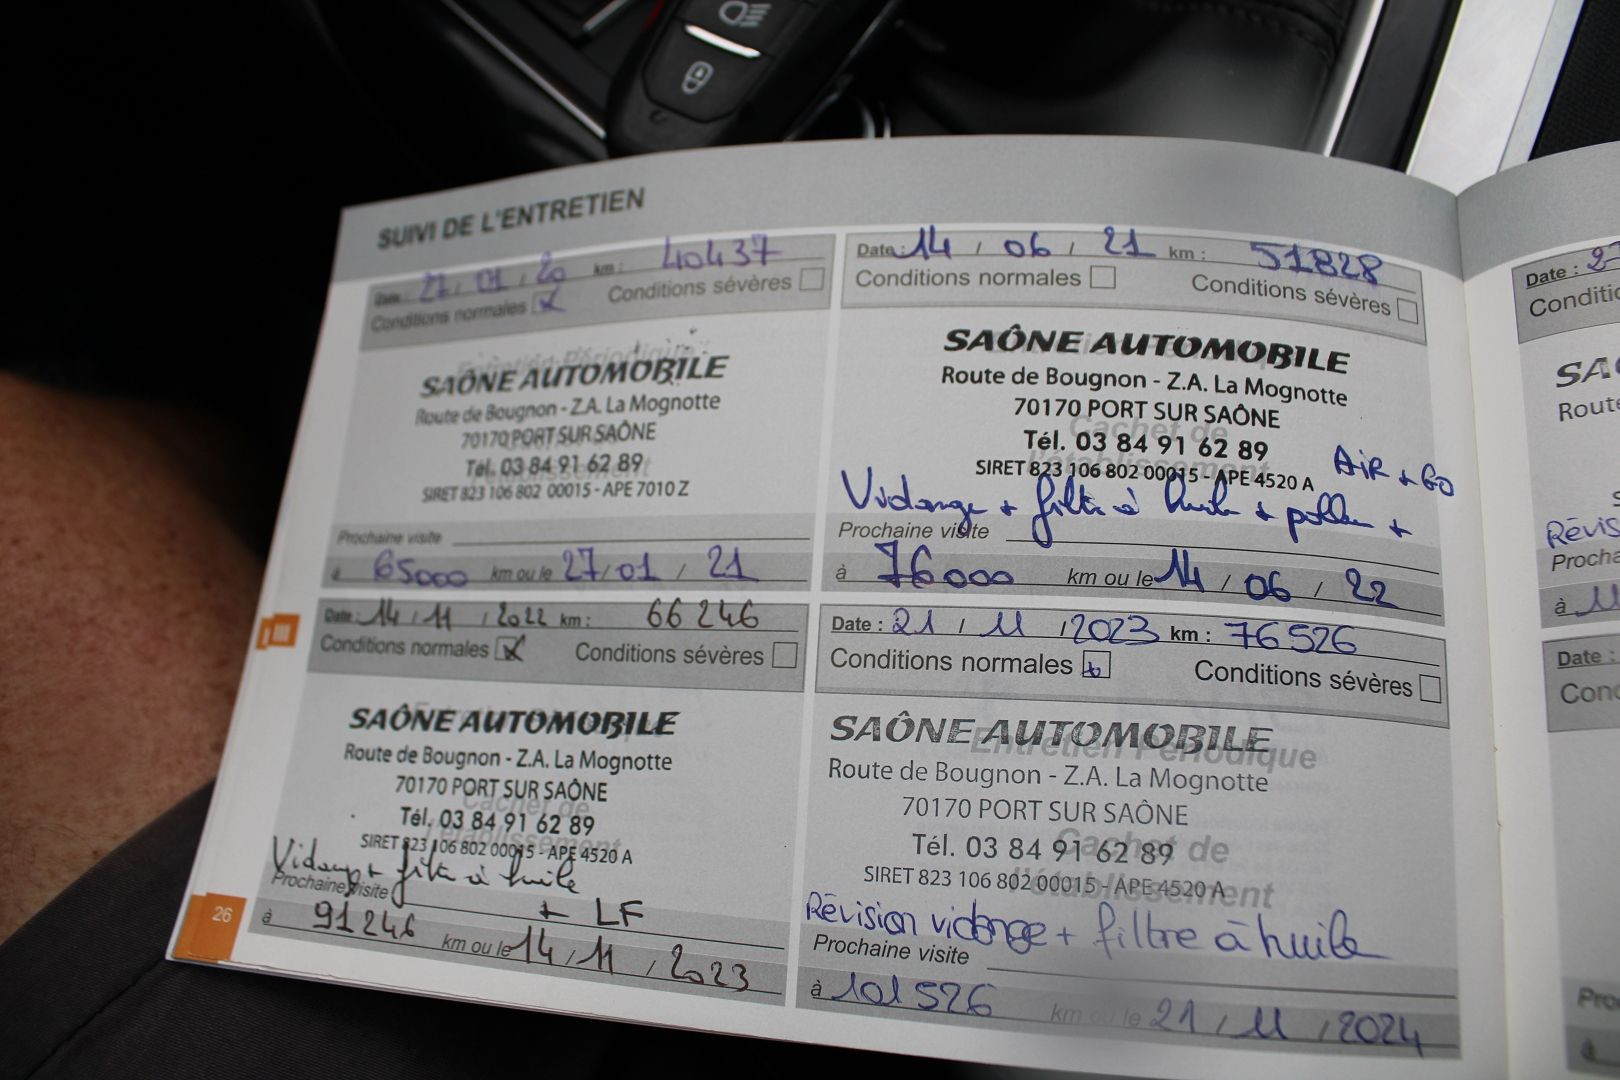 SUIVI DE L'ENTRETIEN
Date : 27 / 01 / 20 km : 40437
Conditions normales Conditions sévères
Entretien Périodique
SAÔNE AUTOMOBILE
Route de Bougnon - Z.A. La Mognotte
70170 PORT SUR SAÔNE
Tél. 03 84 91 62 89
SIRET 823 106 802 00015 - APE 7010 Z
Prochaine visite
à 65000 km ou le 27/01 / 21
Date : 14 / 06 / 21 km : 51828
Conditions normales Conditions sévères
SAÔNE AUTOMOBILE
Route de Bougnon - Z.A. La Mognotte
70170 PORT SUR SAÔNE
Cachet de
Tél. 03 84 91 62 89
l'établissement
SIRET 823 106 802 00015 - APE 4520 A
AiR + GO
Vidange + filtre à huile + pollen +
Prochaine visite
à 76000 km ou le 14 / 06 / 22
Date : 14 / 11 / 2022 km : 66246
Conditions normales Conditions sévères
SAÔNE AUTOMOBILE
Route de Bougnon - Z.A. La Mognotte
70170 PORT SUR SAÔNE
Cachet de
Tél. 03 84 91 62 89
l'établissement
SIRET 823 106 802 00015 - APE 4520 A
Vidange + filtre à huile
Prochaine visite
+ LF
à 91246 km ou le 14 / 11 / 2023
Date : 21 / 11 / 2023 km : 76526
Conditions normales Conditions sévères
SAÔNE AUTOMOBILE
Entretien Périodique
Route de Bougnon - Z.A. La Mognotte
70170 PORT SUR SAÔNE
Cachet de
Tél. 03 84 91 62 89
l'établissement
SIRET 823 106 802 00015 - APE 4520 A
Révision vidange + filtre à huile
Prochaine visite
à 101526 km ou le 21 / 11 / 2024
26
Date :
Date :